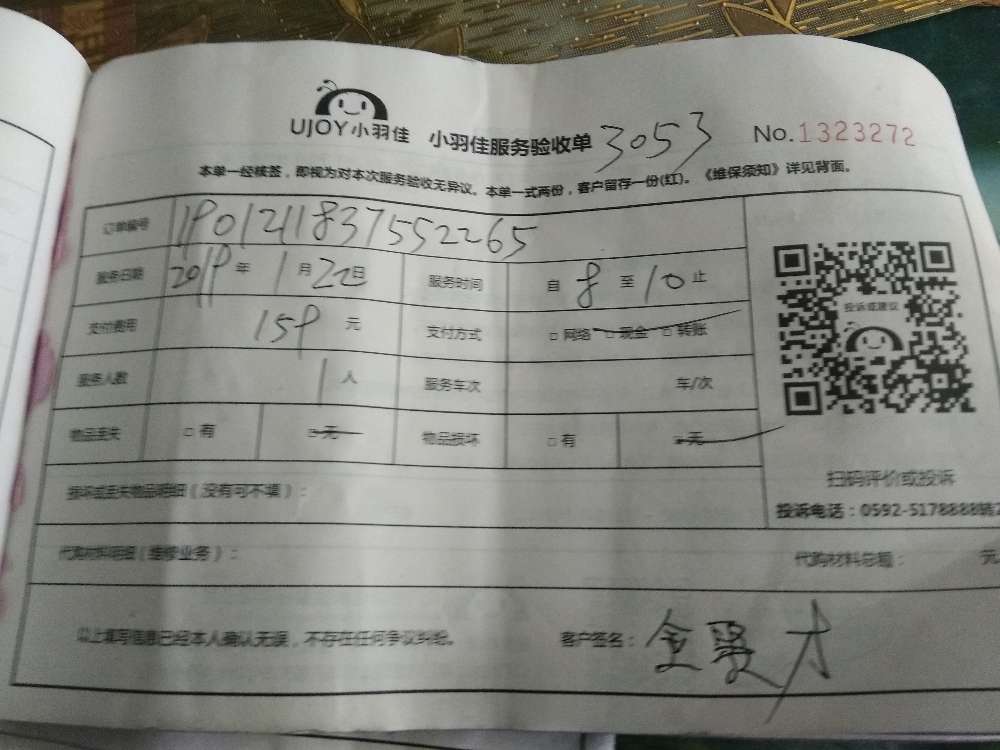 UJOY小羽佳 小羽佳服务验收单 3053 No.1323272
本单一经核签，即视为对本次服务验收无异议。本单一式两份，客户留存一份(红)。《维保须知》详见背面。
订单编号 1901211837552265
服务日期 2019年1月22日 服务时间 自8至10止
支付费用 159元 支付方式 □网络 □现金 □转账
服务人数 1人 服务车次 车/次
物品丢失 □有 □无 物品损坏 □有 □无
投诉或建议
扫码评价或投诉
损坏或丢失物品明细（没有可不填）：
投诉电话：0592-5178888转2
代购材料明细（维修业务）： 代购材料总额： 元
以上填写信息已经本人确认无误，不存在任何争议纠纷。 客户签名：金 才